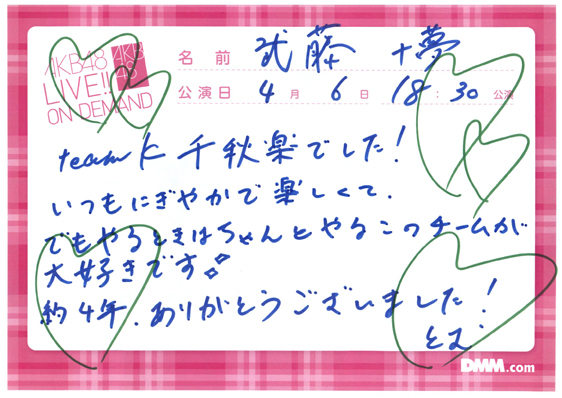 AKB48
LIVE!!
ON DEMAND
AKB
48
名前 武藤 十夢
公演日 4月 6日 18:30 公演
teamK 千秋楽でした!
いつもにぎやかで楽しくて、
でもやるときはちゃんとやるこのチームが
大好きです
約4年、ありがとうございました!
とむ
DMM.com